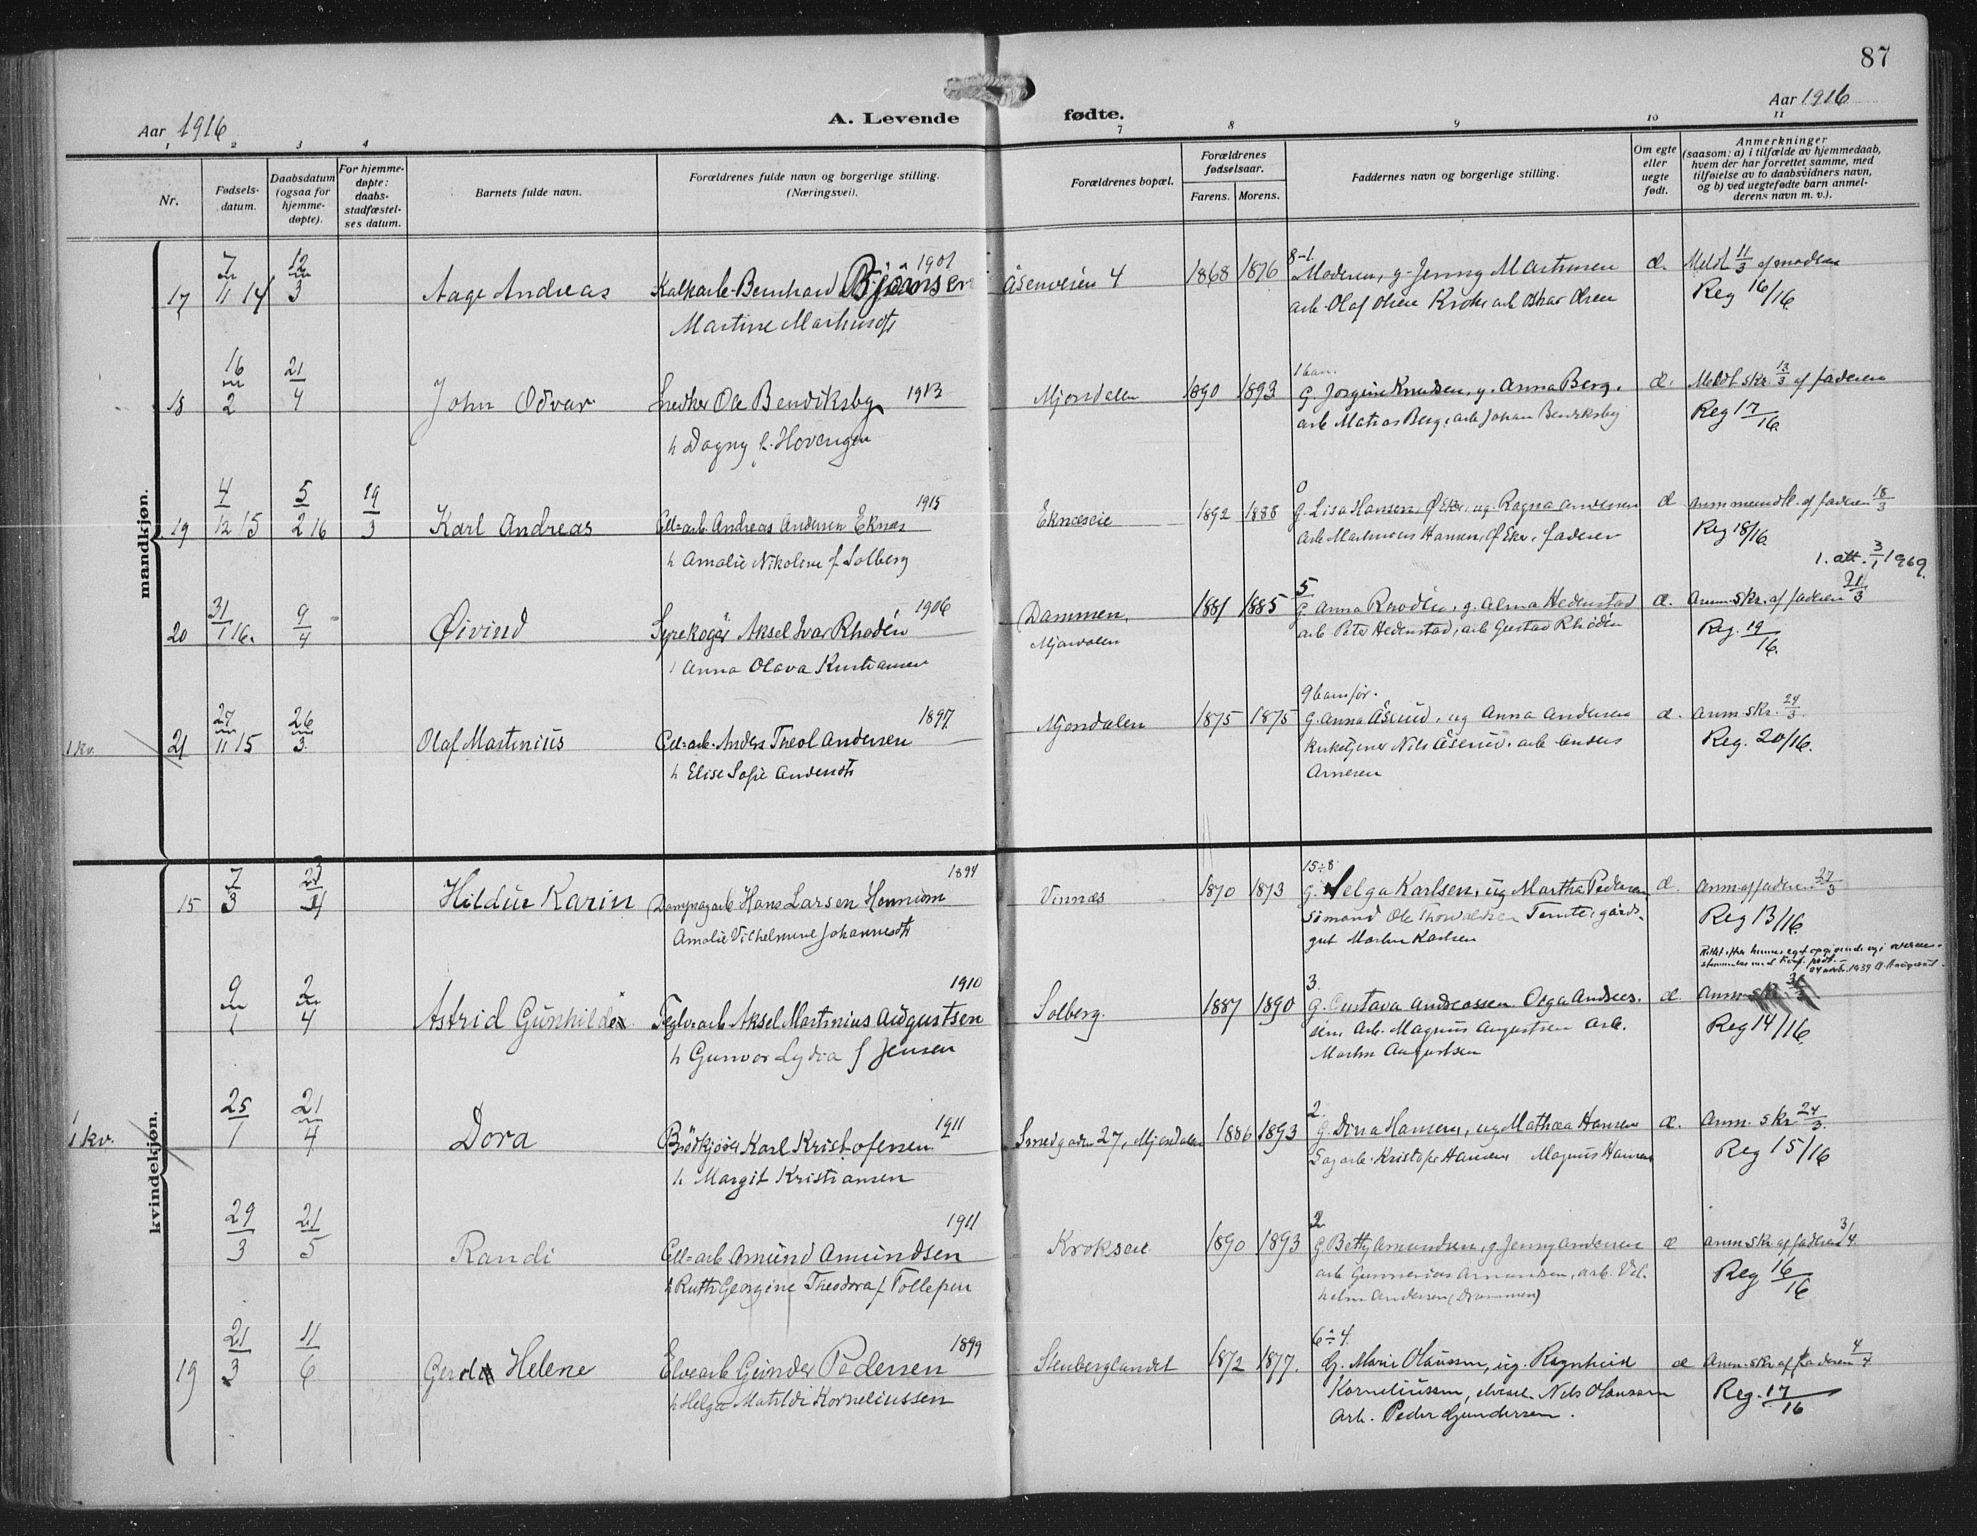 87
Aar 1916
A. Levende fødte.
Aar 1916
1 2 3 4 7 8 9 10 11
Nr.
Fødsels-
datum.
Daabsdatum
(ogsaa for
hjemme-
døpte).
For hjemme-
døpte:
daabs-
stadfæstel-
ses datum.
Barnets fulde navn.
Forældrenes fulde navn og borgerlige stilling.
(Næringsvei).
Forældrenes bopæl.
Forældrenes
fødselsaar.
Farens. Morens.
Faddernes navn og borgerlige stilling.
Om egte
eller
uegte
født.
Anmerkninger
(saasom: a) i tilfælde av hjemmedaab,
hvem der har forrettet samme, med
tilføielse av to daabsvidners navn,
og b) ved uegtefødte barn anmel-
derens navn m. v.).
mandkjøn.
17 7/11 14 12/3 Aage Andreas Kalkarb. Bernhard Bjørnsen 1901 Åsenveien 4 1868 1876 8-1. Moderen, g. Jenny Martinsen æ. Meldt 11/3 af moderen
Martine Martinsdt arb. Olaf Olsen Krok, arb. Oskar Olsen Reg 16/16.
18 16/2 21/4 John Odvar Snedker Ole Bendiksby 1913 Mjøndalen 1890 1893 G. Jorgine Knudsen, g. Anna Berg, æ. Meldt skr. 13/3 af faderen
h Dagny f. Hovengen arb Matias Berg, arb Johan Bendiksby Reg 17/16.
19 4/12 15 5/2 16 19/3 Karl Andreas Cell=arb Andreas Andersen Eknæs 1915 Eknæseie 1892 1888 0 G. Lisa Hansen Ø Eker, ug. Ragna Andersen æ af faderen 18/3
h Amalie Nikoline f Solberg arb Martinius Hansen, Ø Eker, faderen Reg 18/16.
1. att. 3/1 1969.
20 31/1 16. 9/4 Øivind Syrekoger Aksel Ivar Rhodén 1906 Dammen, 1881 1885 5 G Anna Rhodén, g. Alma Hedenstad æ. Anm. skr. af faderen 21/3
Anna Olava Kristiansen Mjøndalen arb Peter Hedenstad, arb Gustav Rhodén Reg. 19/16.
1 kv. 21 27/11 15 26/3 Olaf Martinius Cell=arb. Anders Theol Andersen 1897 Mjøndalen 1875 1875 9 barn før. G. Anna Åserud, ug Anna Andersen æ. Anm skr. 24/3.
h Elise Sofie Andersdt Kirketjener Nils Åserud, arb Anders Reg. 20/16.
Arnesen
kvindekjøn.
15 7/3 Hildur Karin Hans Larsen 1894 Vinnæs 1870 1873 15÷8 G. Helga Karlsen, ug Martha Pedersen æ. Anm af faderen 27/3
Amalie Vilhelmine Johannesdt Sømand Ole Thorvaldsen Temte, gårds- Reg 13/16.
gut Martin Karlsen
24 1939
9/1 2/4 Astrid Gunhild Teglv=arb Aksel Martinius Augustsen 1910 Solberg. 1887 1890 3. G. Gustava Andreassen Olga Andres- æ. Anm
h Gunvor Lydia f Jensen sen, Arb. Magnus Augustsen Arb. Reg 14/16.
Martin Augustsen
1 kv. 25/1 21/4 Dora Bødkjører Karl Kristofersen 1911 Smedgaden 27, Mjøndalen 1886 1893 2. G. Dina Hansen, ug Mathea Hansen æ. Anm. skr 24/3.
h Margit Kristiansen Sagarb. Kristofer Hansen Magnus Hansen Reg 15/16
29/3 21/5 Randi Cell=arb Amund Amundsen 1911 Krokseie 1890 1893 2 G Betty Amundsen, g. Jenny Andersen æ Anm skr af faderen 3/4.
h Ruth Georgine Theodora f Tollefsen arb Gunnerius Amundsen, arb. Vil- Reg 16/16
helm Andersen (Drammen)
19 21/3 11/6 Gerd Helene Elvearb Gunder Pedersen 1899 Stenberglandet 1872 1877. 6÷4. G. Marie Olaussen, ug. Ragnheid æ Anm. skr af faderen 4/4
h Helga Matilde Korneliussen Korneliussen, elvearb. Nils Olaussen Reg. 17/16
Arb. Peder Gundersen.